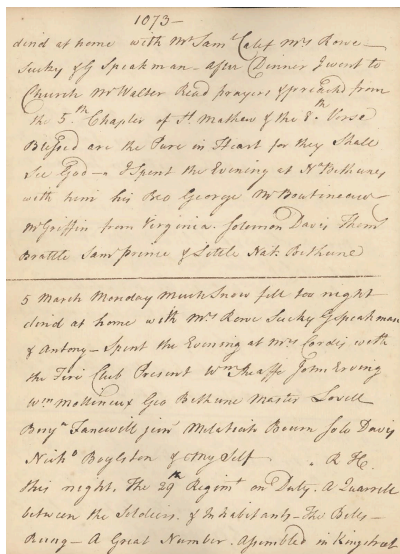 1073 —
dind at home with Mr Saml Calef Mrs Rowe —
Sucky & G Speakman — after Dinner I went to
Church Mr Walter Read prayers & preached from
the 5th Chapter of St. Mathew & the 8th Verse
Blessed are the Pure in Heart for they Shall
See God — I Spent the Evening at N Bethunes
with him his Bro George Mr Boutineau
Mr Griffin from Virginia. Solomon Davis Thoms
Brattle Saml Prince & Little Nat. Bethune
5 March Monday Much Snow fell too night
dind at home with Mrs Rowe Sucky G Speakman
& Antony — Spent the Evening at Mrs Cordis with
the Fire Club Present Wm Sheaffe John Erving
Wm Mollineux Geo Bethune Master Lovell
Benjn Fanewill junr Melatiah Bourn Solo Davis
Nicho Boylston & my Self R H.
this night. The 29th Regimt on Duty. A Quarrell
between the Soldiers. & Inhabitants — The Bells —
Rung — A Great Number. Assembled in Kingstreet